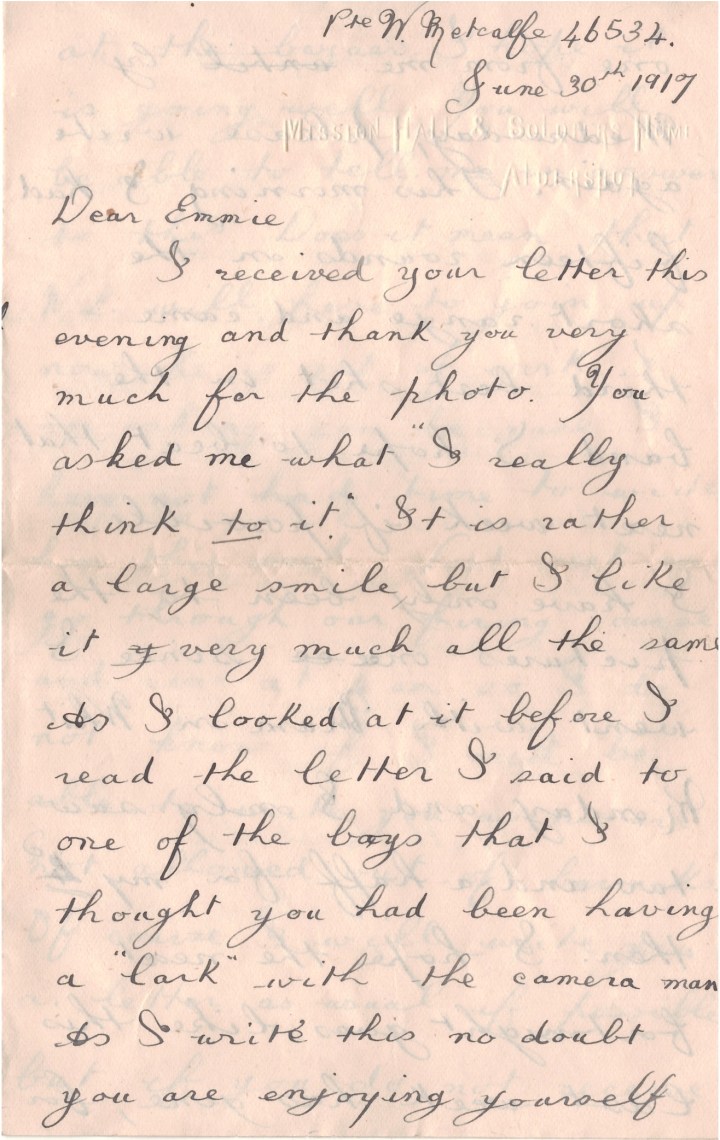 Pte W. Metcalfe 46534.
June 30th 1917
Mission Hall & Soldiers Home
Aldershot
Dear Emmie
I received your letter this
evening and thank you very
much for the photo. You
asked me what "I really
think to it". It is rather
a large smile, but I like
it very much all the same
As I looked at it before I
read the letter I said to
one of the boys that I
thought you had been having
a "lark" with the camera man
As I write this no doubt
you are enjoying yourself